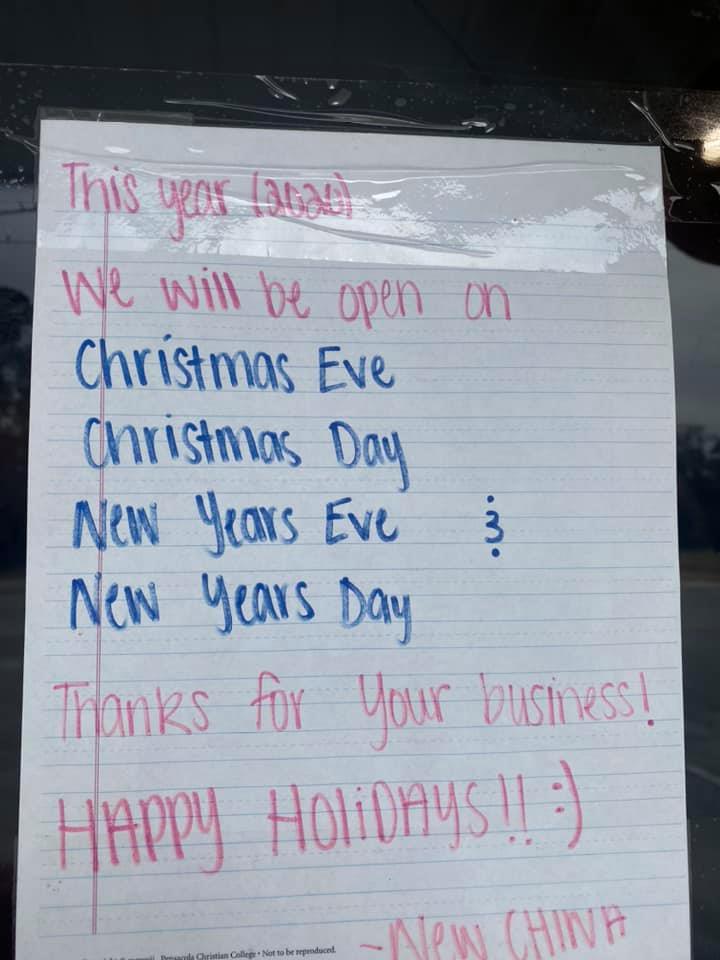 This year (2020)
We will be open on
Christmas Eve
Christmas Day
New Years Eve &
New Years Day
Thanks for your business!
HAPPY HOLiDAYS!! :)
Pensacola Christian College • Not to be reproduced.
~New CHINA